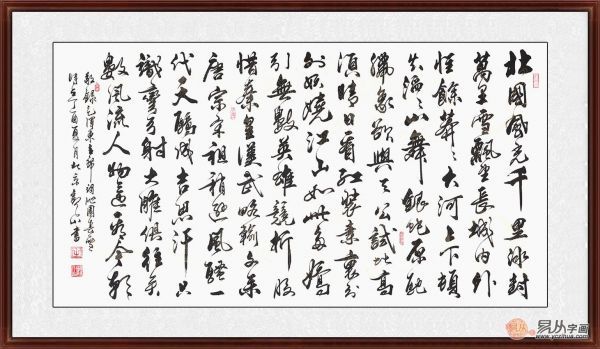 北國風光千里冰封
萬里雪飄望長城內外
惟餘莽々大河上下頓
失滔々山舞銀蛇原馳
蠟象欲與天公試比高
須晴日看紅裝素裹分
外妖嬈江山如此多嬌
引無數英雄競折腰
惜秦皇漢武略輸文采
唐宗宋祖稍遜風騷一
代天驕成吉思汗只
識彎弓射大雕俱往矣
數風流人物還看今朝
敬錄毛澤東主席詞沁園春雪
時在丁酉夏月北京書
易从字画
www.yczihua.com